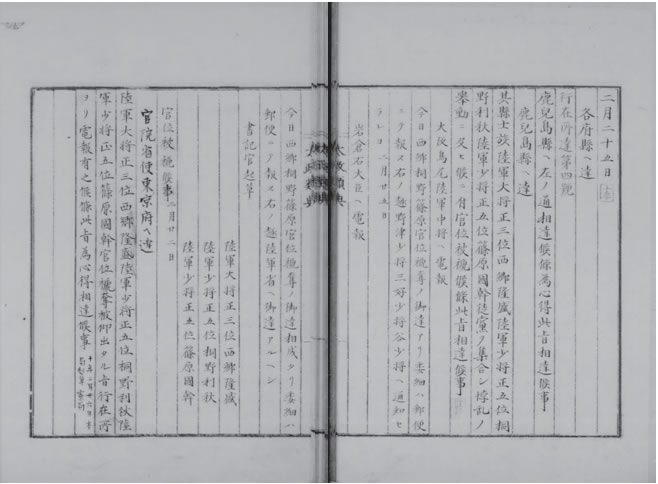 二月二十五日
各府縣ヘ達
行在所達第四號
鹿兒島縣ヘ左ノ通相達候條為心得此旨相達候事
鹿兒島縣ヘ達
其縣士族陸軍大將正三位西鄉隆盛陸軍少將正五位桐
野利秋陸軍少將正五位篠原國幹徒黨ヲ集合シ悖乱ノ
舉動ニ及ヒ候ニ付官位被褫候條此旨相達候事
大坂鳥尾陸軍中將ヘ電報
今日西鄉桐野篠原官位褫奪ノ御達アリ委細ハ郵便
ニテ報ス右ノ趣野津少將三好少將谷少將ヘ通知セ
ラレヨ 二月廿五日
岩倉右大臣ヘ電報
今日西鄉桐野篠原官位褫奪ノ御達相成タリ委細ハ
郵便ニテ報ス右ノ趣陸軍省ヘ御達アルヘシ
書記官起草
陸軍大將正三位西鄉隆盛
陸軍少將正五位桐野利秋
陸軍少將正五位篠原國幹
官位被褫候事 二月二日
官院省使東京府ヘ達
陸軍大將正三位西鄉隆盛陸軍少將正五位桐野利秋陸
軍少將正五位篠原國幹官位褫奪被仰出タル旨行在所
ヨリ電報有之候條此旨為心得相達候事